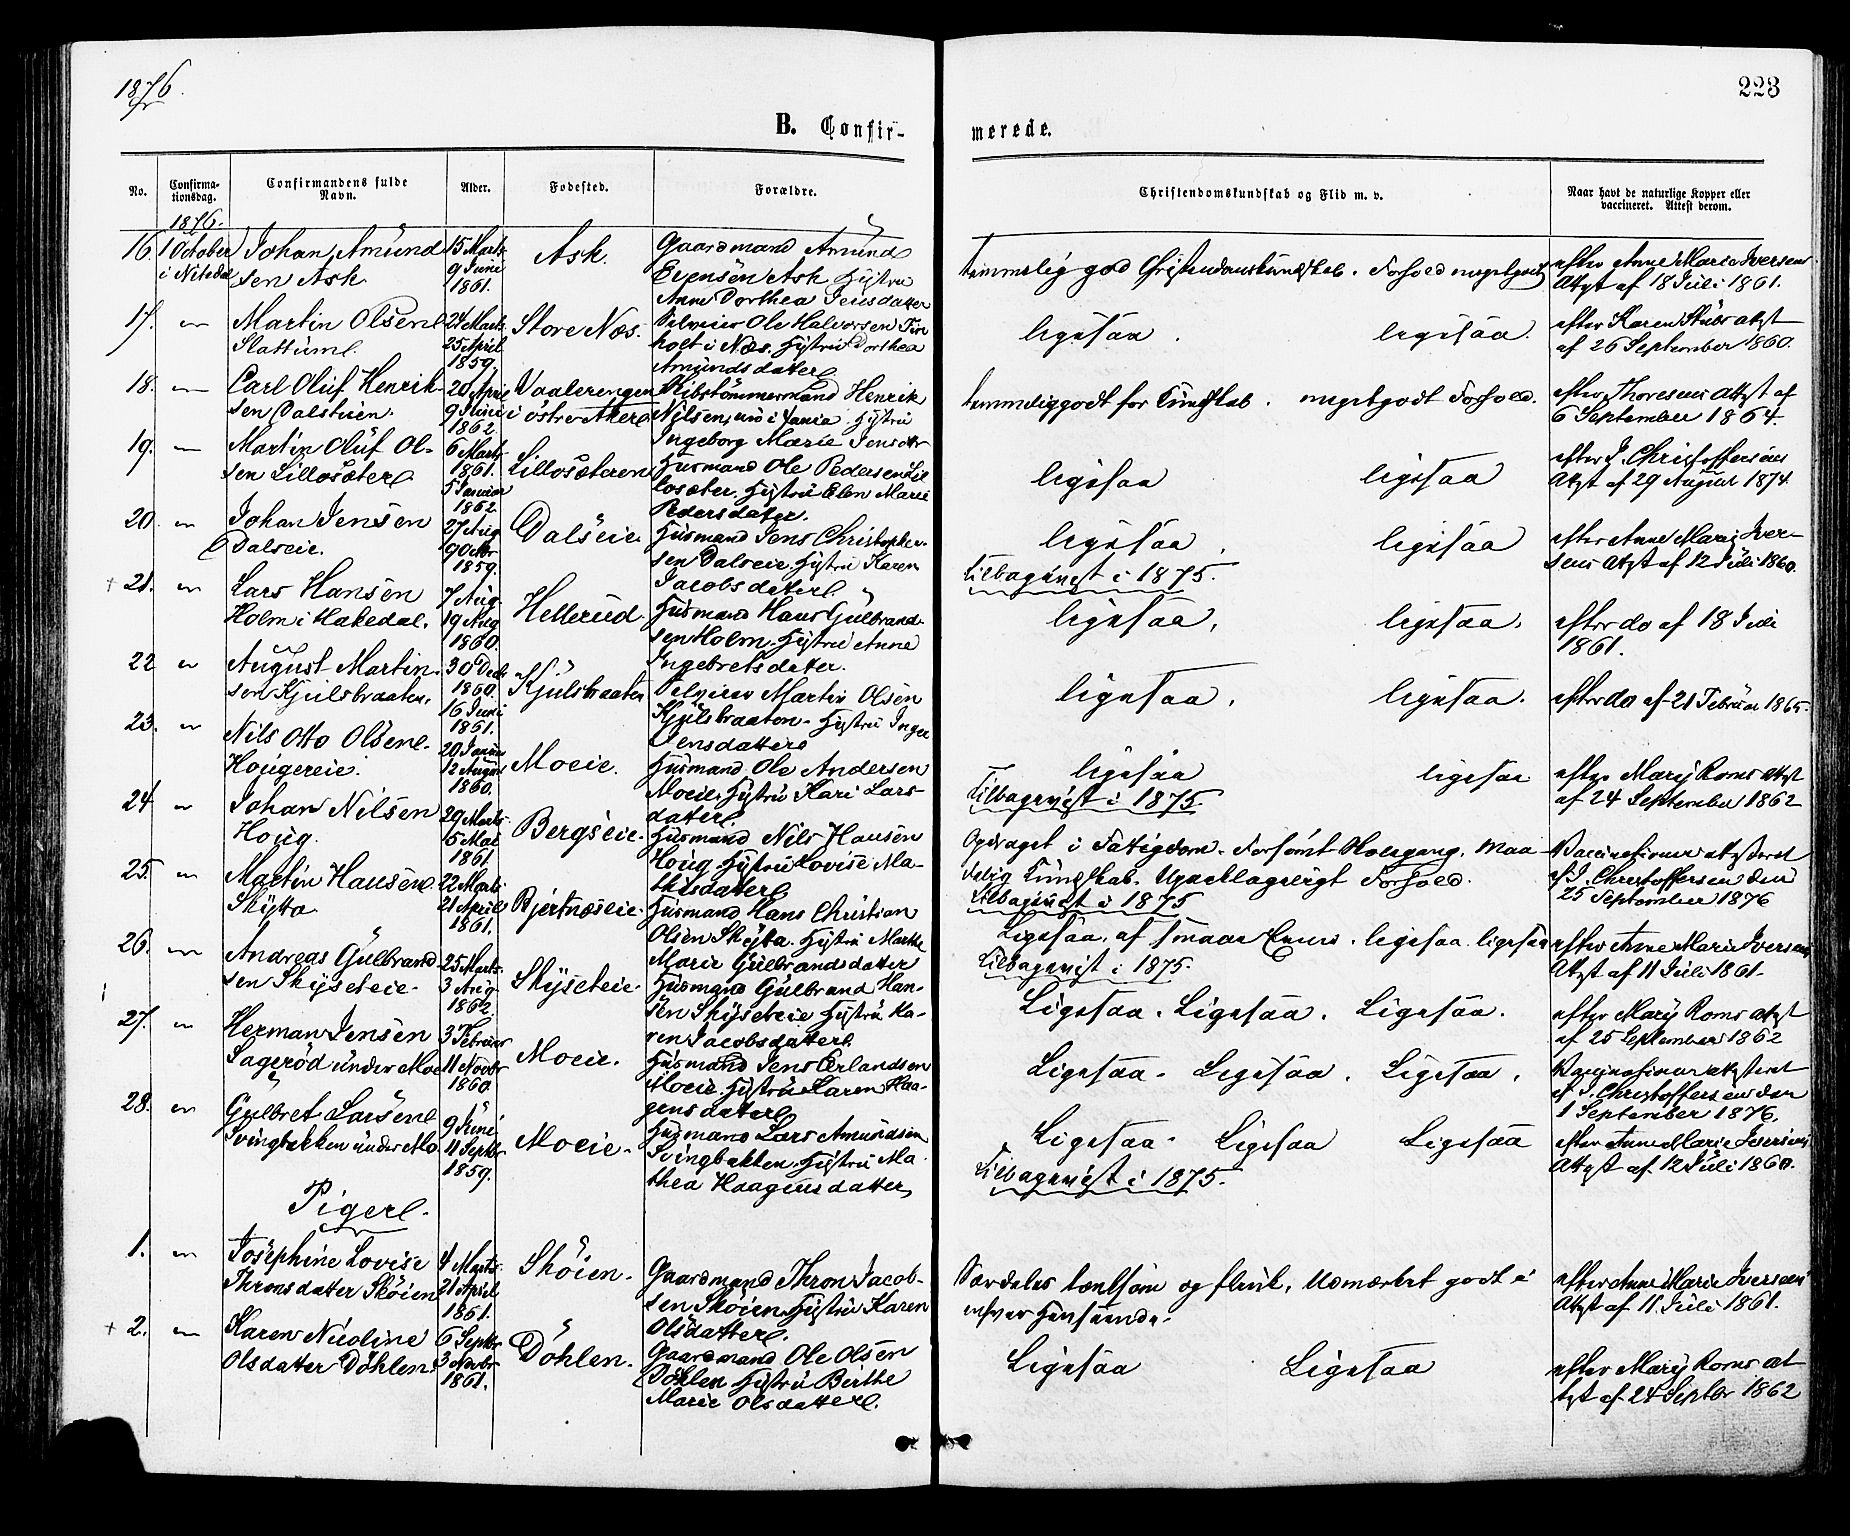 1876.
223
B. Confir-
merede.
No.
Confirma-
tionsdag.
Confirmandens fulde
Navn.
Alder.
Fødested.
Forældre.
Christendomskundskab og Flid m. v.
Naar havt de naturlige Kopper eller
vaccineret. Attest derom.
1876.
16. 1 October
i Nitedal
Johan Amund
sen Ask
15 Marts
9 Juni
1861.
Ask.
Gaardmand Amund
Evensen Ask Hustru
Anne Dorthea Jensdatter
temmelig god Christendomskundskab. Forhold meget godt
efter Anne Marie Iversens
Attest af 18 Juli 1861.
17. "
Martin Olsen
Slattum.
24 Marts
25 April
1859.
Store Næs.
Ole Halvorsen
holt i Næs. Hustru Dorthea
Amundsdatter
ligesaa. ligesaa.
efter Karen Attest
af 26 September 1860.
18. "
Carl Oluf Henrik-
sen Dalstuen.
20 April
9 Juni
1862
Vaalerengen
i østre Aker
Skibstømmermand Henrik
Nilsen, nu i Hustru
Ingeborg Marie Jensdtr
temmelig godt for Kundskab. meget godt Forhold.
efter Thoresens Attest af
6 September 1864.
19. "
Martin Oluf Ol-
sen Lillosæter
6 Marts
1861.
5 Januar
1862.
Lillosæteren
Husmand Ole Pedersen Lil
losæter. Hustru Elen Marie
Pedersdater.
ligesaa ligesaa
efter J. Christoffersens
Attest af 29 August 1874.
20. "
Johan Jensen
Dalseie.
27 Aug
9 Octbr
1859.
Dalseie.
Husmand Jens Christopher-
sen Dalseie. Hustru Karen
Jacobsdatter
ligesaa. ligesaa
Tilbagevist i 1875.
efter Anne Marie Iver-
sens Attest af 12 Juli 1860.
+ 21. "
Lars Hansen
Holm i Hakedal.
7 Aug
19 Aug
1860.
Hellerud.
Husmand Hans Gulbrand-
sen Holm. Hustru Anne
Ingebretsdater.
ligesaa. ligesaa.
efter do af 18 Juli
1861.
22 "
August Martin-
sen Kjulsbraaten.
30 Decb
1860.
16 Juni
1861.
Kjulsbraaten
Martin Olsen
Kjulsbraaten. Hustru Inger
Jensdatter
ligesaa. ligesaa.
efter do af 21 Februar 1865.
23. "
Nils Otto Olsen
Hougereie.
20 Januar
12 August
1860.
Moeie.
Husmand Ole Andersen
Moeie. Hustru Kari Lars-
datter.
ligesaa ligesaa
Tilbagevist i 1875.
efter Mary Roms Attest
af 24 September 1862
24 "
Johan Nilsen
Houg.
29 Marts
15 Mai
1861.
Bergseie.
Husmand Nils Hansen
Houg Hustru Lovise Ma-
thisdatter
Opdraget i Fattigdom. Forsømt Skolegang. Maa-
delig Kundskab. Upaaklageligt Forhold.
Tilbagevist i 1875
Vaccinationen attesteret
af J. Christoffersen den
25 September 1876
25. "
Martin Hansen
Skytta.
22 Marts
21 April
1861.
Bjertnæseie.
Husmand Hans Christian
Olsen Skyta. Hustru Marthe
Marie Gulbrandsdatter
Ligesaa, af smaae Evner. ligesaa. ligesaa
Tilbagevist i 1875.
efter Anne Marie Iversens
Attest af 11 Juli 1861.
26. "
Andreas Gulbrand
sen Skyseteie.
25 Marts
3 Aug.
1862.
Skyseteie.
Husmand Gulbrand Han-
sen Skyseteie Hustru Ka-
ren Jacobsdatter.
Ligesaa. Ligesaa. Ligesaa.
efter Mary Roms Attest
af 25 September 1862
27. "
Herman Jensen
Sagerød under Moe
3 Februar
11 Novbr
1860
Moeie.
Husmand Jens Erlandsen
Moeie. Hustru Karen Haa-
gensdatter
Ligesaa. Ligesaa. Ligesaa.
Vaccinationen attesteret
af J. Christoffersen den
1 September 1876.
28. "
Gulbret Larsen
Svingbakken under Mo.
9 Juni
11 Septbr
1859.
Moeie.
Husmand Lars Amundsen
Svingbakken. Hustru Ma-
thea Haagensdatter
Ligesaa. Ligesaa Ligesaa
Tilbagevist i 1875.
efter Anne Marie Iversens
Attest af 12 Juli 1860.
Piger.
1. "
Josephine Lovise
Thronsdatter Skøien
4 Marts
21 April
1861.
Skøien.
Gaardmand Thron Jacob-
sen Skøien. Hustru Karen
Olsdatter.
Særdeles lærelsom og flink. Udmærket godt i
enhver Henseende.
efter Anne Marie Iversens
Attest af 11 Juli 1861.
+ 2. "
Karen Nicoline
Olsdatter Døhlen
6 Septbr
3 Novbr
1861.
Døhlen.
Gaardmand Ole Olsen
Døhlen Hustru Birthe
Marie Olsdatter.
Ligesaa Ligesaa
efter Mary Roms At
test af 24 Septbr 1862